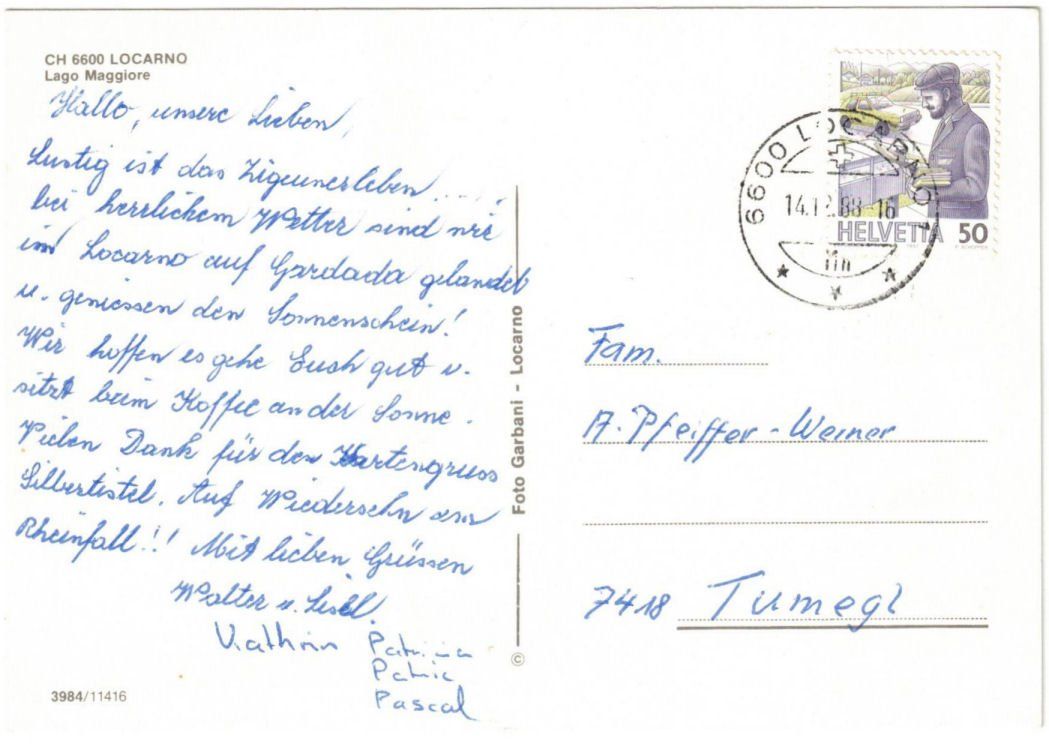 CH 6600 LOCARNO
Lago Maggiore
Hallo, unsere Lieben,
Lustig ist das Zigeunerleben.....,
bei herrlichem Wetter sind wir
im Locarno auf Cardada gelandet
u. geniessen den Sonnenschein!
Wir hoffen es gehe Euch gut u.
sitzt beim Kaffee an der Sonne.
Vielen Dank für den Kartengruss
Silbertistel. Auf Wiedersehn am
Rheinfall!! Mit lieben Grüssen
Walter u. Lisel.
Kathrin Patricia
Patric
Pascal
3984/11416
Foto Garbani - Locarno
©
6600 LOCARNO 1
14.12.88-16
HELVETIA 50
Fam.
A. Pfeiffer-Werner
7418 Tumegl